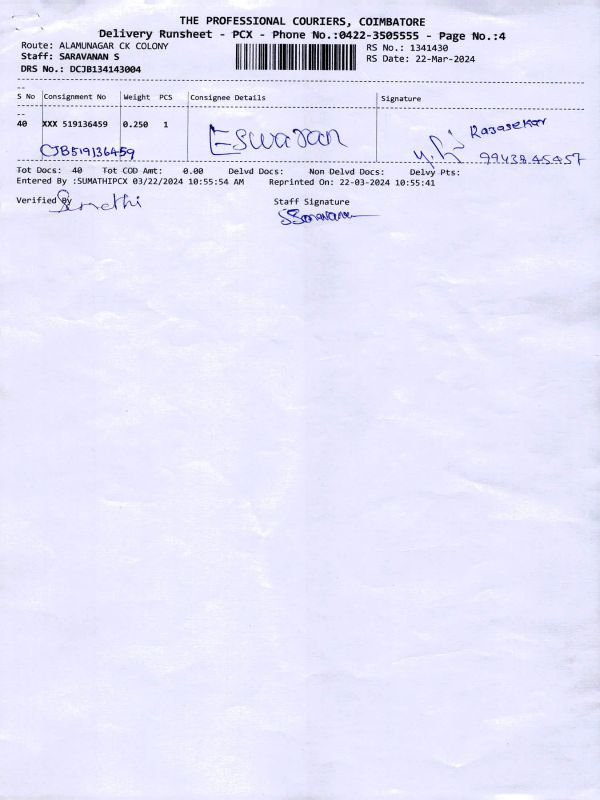 THE PROFESSIONAL COURIERS, COIMBATORE
Delivery Runsheet - PCX - Phone No.:0422-3505555 - Page No.:4
Route: ALAMUNAGAR CK COLONY
RS No.: 1341430
Staff: SARAVANAN S
RS Date: 22-Mar-2024
DRS No.: DCJB134143004
--
S No Consignment No Weight PCS Consignee Details Signature
--
40 XXX 519136459 0.250 1 Eswaran Rajasekar
CJB519136459 9943845457
Tot Docs: 40 Tot COD Amt: 0.00 Delvd Docs: Non Delvd Docs: Delvy Pts:
Entered By :SUMATHIPCX 03/22/2024 10:55:54 AM Reprinted On: 22-03-2024 10:55:41
Verified By
Staff Signature
SSaravanan